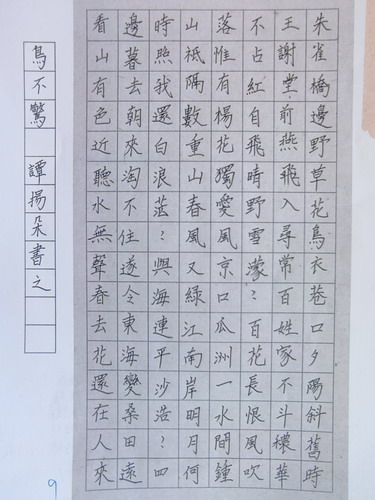 朱雀橋邊野草花鳥衣巷口夕陽斜舊時
王謝堂前燕飛入尋常百姓家不斗襛華
不占紅自飛時野雪濛?百花長恨風吹
落惟有楊花獨愛風京口瓜洲一水間鐘
山祗隔數重山春風又綠江南岸明月何
時照我還白浪茫?與海連平沙浩?四
邊暮去朝來淘不住遂令東海變桑田遠
看山有色近聽水無聲春去花還在人來
鳥不驚 譚揚朵書之
9